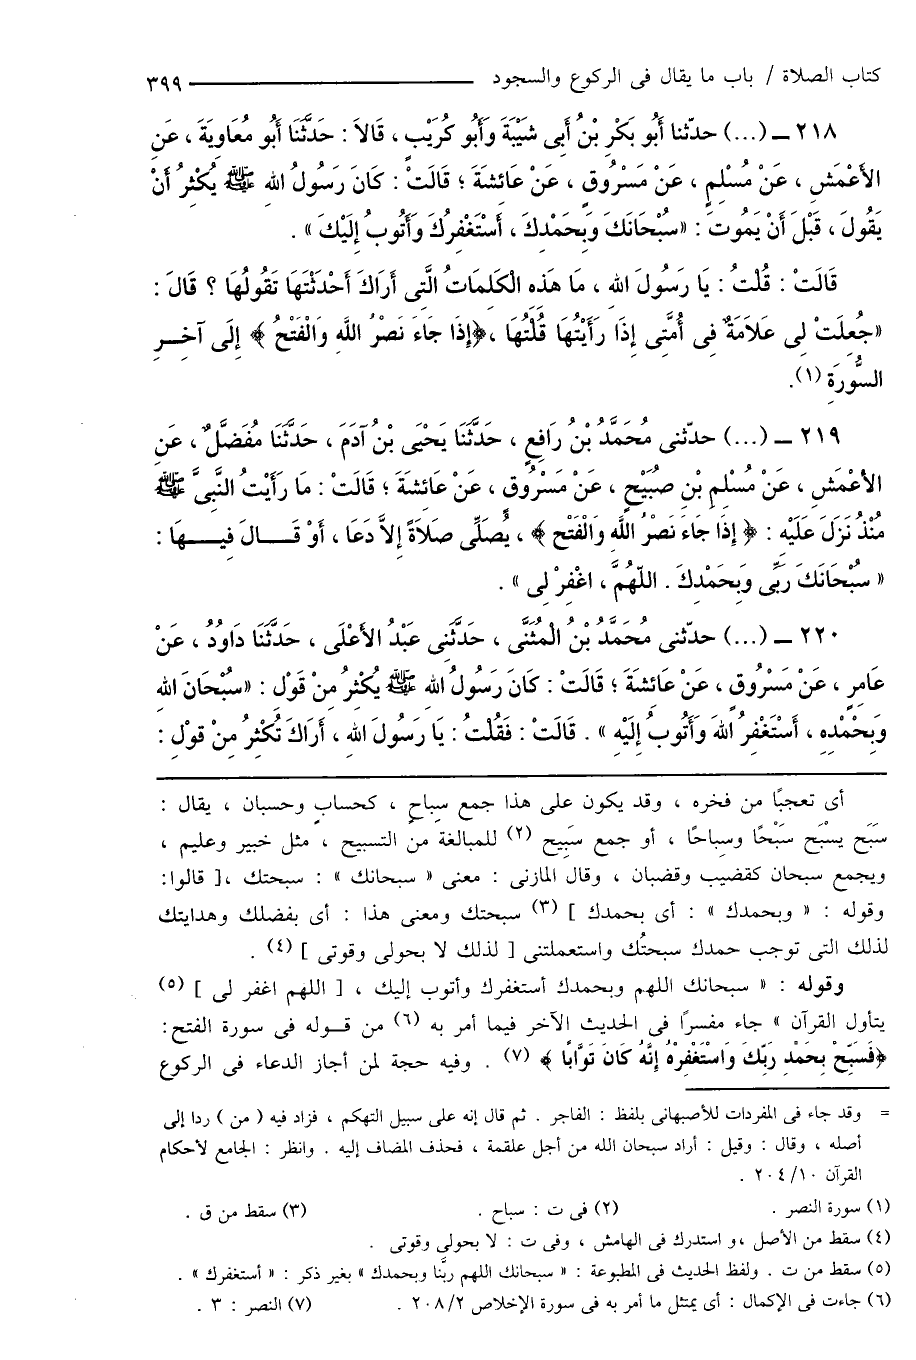 كتاب الصلاة / باب ما يقال فى الركوع والسجود ــــــــــــــــــــ ٣٩٩
٢١٨ ــ (...) حدّثنا أَبُو بَكْرِ بْنُ أَبِى شَيْبَةَ وَأَبُو كُرَيْبٍ ، قَالاَ : حَدَّثَنَا أَبُو مُعَاوِيَةَ ، عَنِ
الأَعْمَشِ ، عَنْ مُسْلِمٍ ، عَنْ مَسْرُوقٍ ، عَنْ عَائِشَةَ ؛ قَالَتْ : كَانَ رَسُولُ اللهِ ﷺ يُكْثِرُ أَنْ
يَقُولَ ، قَبْلَ أَنْ يَمُوتَ : «سُبْحَانَكَ وَبِحَمْدِكَ ، أَسْتَغْفِرُكَ وَأَتُوبُ إِلَيْكَ» .
قَالَتْ : قُلْتُ : يَا رَسُولَ اللهِ ، مَا هَذِهِ الْكَلِمَاتُ الَّتِى أَرَاكَ أَحْدَثْتَهَا تَقُولُهَا ؟ قَالَ :
«جُعِلَتْ لِى عَلاَمَةٌ فِى أُمَّتِى إِذَا رَأَيْتُهَا قُلْتُهَا ،﴿إِذَا جَاءَ نَصْرُ اللَّهِ وَالْفَتْحُ ﴾ إِلَى آخِـرِ
السُّورَةِ (١).
٢١٩ ــ (...) حدّثنى مُحَمَّدُ بْنُ رَافِعٍ ، حَدَّثَنَا يَحْيَى بْنُ آدَمَ ، حَدَّثَنَا مُفَضَّلٌ ، عَنِ
الأَعْمَشِ ، عَنْ مُسْلِمِ بْنِ صُبَيْحٍ ، عَنْ مَسْرُوقٍ ، عَنْ عَائِشَةَ ؛ قَالَتْ : مَا رَأَيْتُ النَّبِىَّ ﷺ
مُنْذُ نَزَلَ عَلَيْهِ : ﴿ إِذَا جَاءَ نَصْرُ اللَّهِ وَالْفَتْحُ ﴾ ، يُصَلِّى صَلاَةً إِلاَّ دَعَا ، أَوْ قَـــالَ فِيـــهَا :
« سُبْحَانَكَ رَبِّى وَبِحَمْدِكَ . اللَّهُمَّ ، اغْفِرْ لِى » .
٢٢٠ ــ (...) حدّثنى مُحَمَّدُ بْنُ الْمُثَنَّى ، حَدَّثَنِى عَبْدُ الأَعْلَى ، حَدَّثَنَا دَاوُدُ ، عَنْ
عَامِرٍ ، عَنْ مَسْرُوقٍ ، عَنْ عَائِشَةَ ؛ قَالَتْ : كَانَ رَسُولُ اللهِ ﷺ يُكْثِرُ مِنْ قَوْلِ : «سُبْحَانَ اللهِ
وَبِحَمْدِهِ ، أَسْتَغْفِرُ اللهَ وَأَتُوبُ إِلَيْهِ » . قَالَتْ : فَقُلْتُ : يَا رَسُولَ اللهِ ، أَرَاكَ تُكْثِرُ مِنْ قَوْلِ :
أى تعجبًا من فخره ، وقد يكون على هذا جمع سباحٍ ، كحسابٍ وحسبان ، يقال :
سَبَح يسْبَح سَبْحًا وسباحًا ، أو جمع سَبِيح (٢) للمبالغة من التسبيح ، مثل خبير وعليم ،
ويجمع سبحان كقضيب وقضبان ، وقال المازنى : معنى « سبحانك » : سبحتك ،[ قالوا:
وقوله : « وبحمدك » : أى بحمدك ] (٣) سبحتك ومعنى هذا : أى بفضلك وهدايتك
لذلك التى توجب حمدك سبحتُك واستعملتنى [ لذلك لا بحولى وقوتى ] (٤) .
وقوله : « سبحانك اللهم وبحمدك أستغفرك وأتوب إليك ، [ اللهم اغفر لى ] (٥)
يتأول القرآن » جاء مفسرًا فى الحديث الآخر فيما أمر به (٦) من قــوله فى سورة الفتح:
﴿فَسَبِّحْ بِحَمْدِ رَبِّكَ وَاسْتَغْفِرْهُ إِنَّهُ كَانَ تَوَّابًا ﴾ (٧) . وفيه حجة لمن أجاز الدعاء فى الركوع
= وقد جاء فى المفردات للأصبهانى بلفظ : الفاجر . ثم قال إنه على سبيل التهكم ، فزاد فيه ( من ) ردا إلى
أصله ، وقال : وقيل : أراد سبحان الله من أجل علقمة ، فحذف المضاف إليه . وانظر : الجامع لأحكام
القرآن ١٠/ ٢٠٤ .
(١) سورة النصر . (٢) فى ت : سباح . (٣) سقط من ق .
(٤) سقط من الأصل ،و استدرك فى الهامش ، وفى ت : لا بحولى وقوتى .
(٥) سقط من ت . ولفظ الحديث فى المطبوعة : « سبحانك اللهم ربَّنا وبحمدك» بغير ذكر : « أستغفرك» .
(٦) جاءت فى الإكمال : أى يمتثل ما أمر به فى سورة الإخلاص ٢/ ٢٠٨ . (٧) النصر : ٣ .